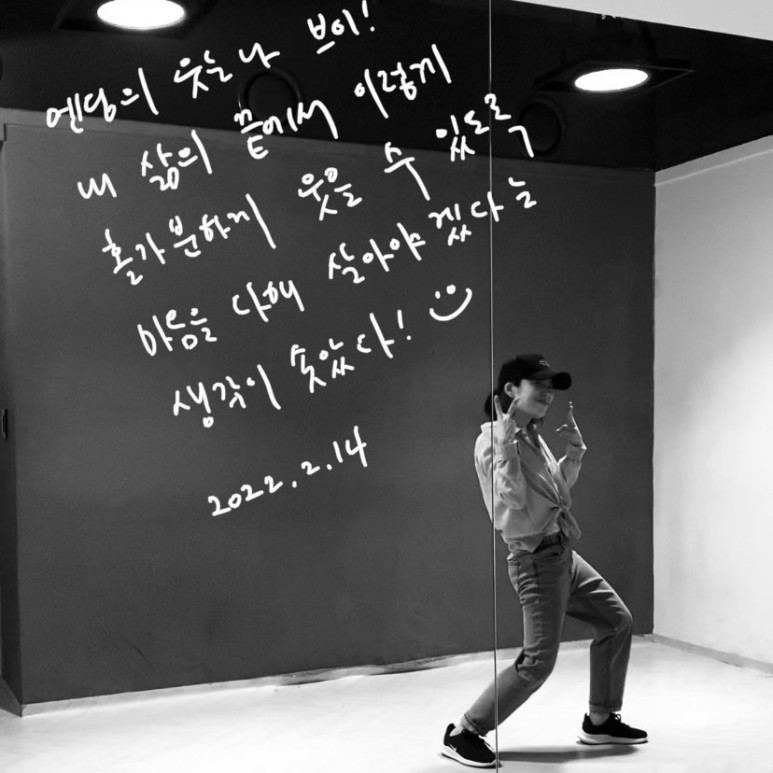 엔딩의 웃는 나 브이!
내 삶의 끝에서 이렇게
홀가분하게 웃을 수 있도록
마음을 다해 살아야겠다는
생각이 솟았다!
2022.2.14